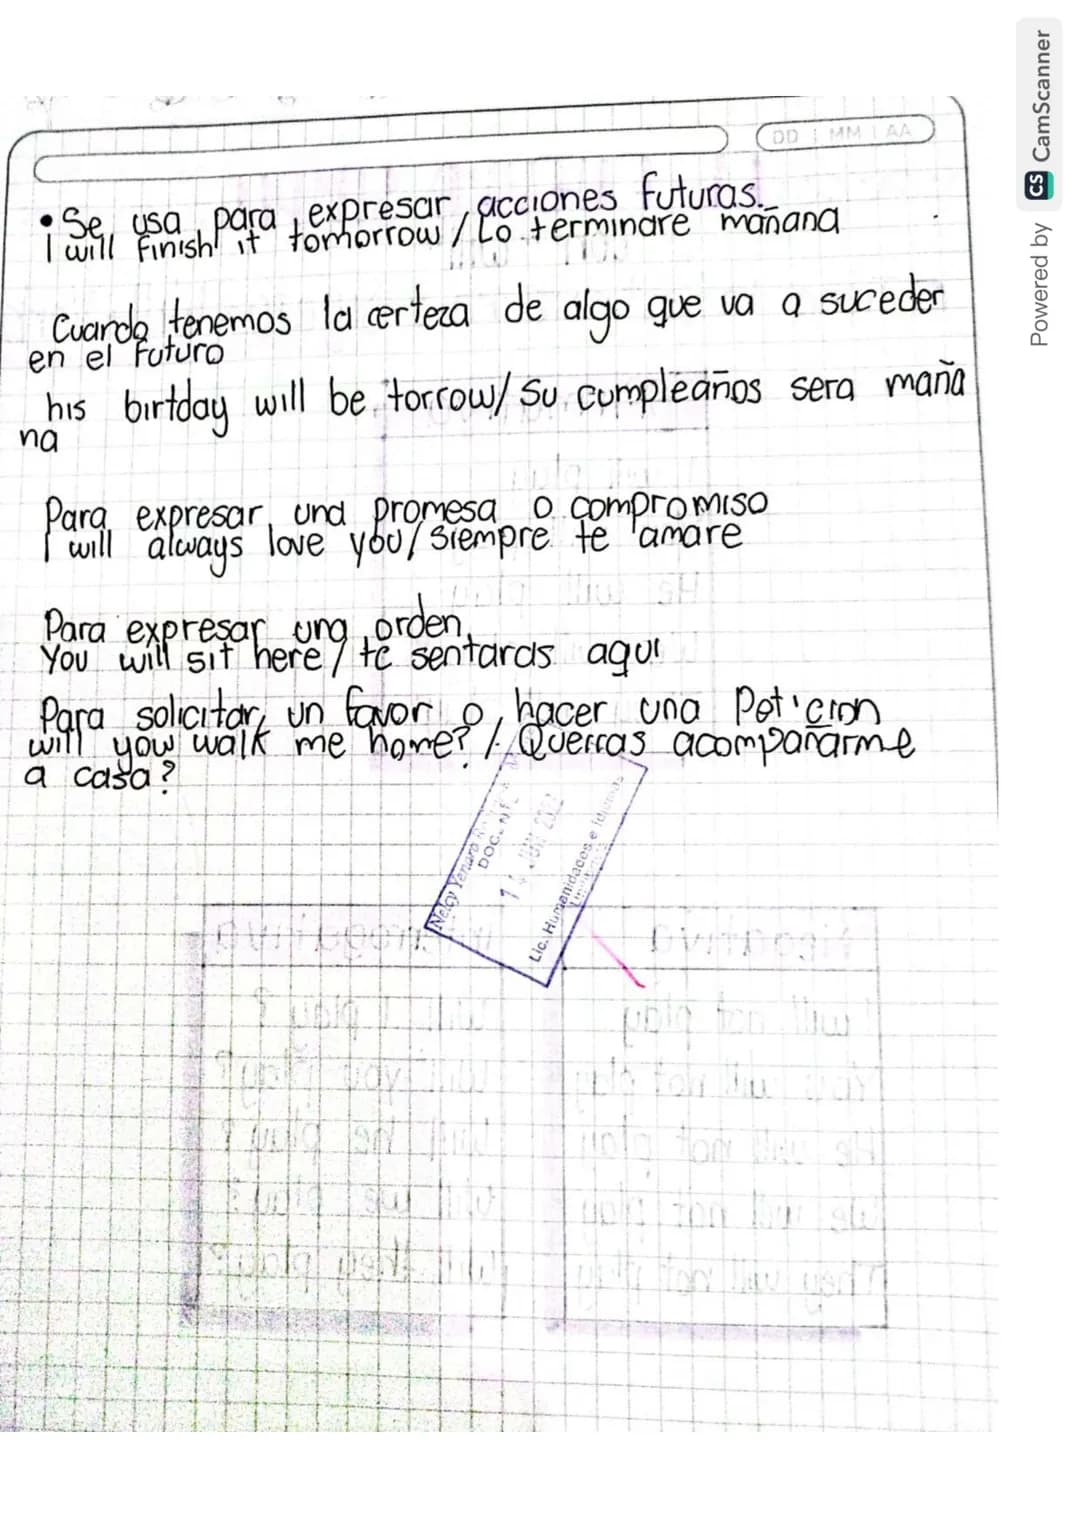 DD MM AA
• Se usa para expresar acciones futuras.
I will finish it tomorrow / Lo terminare mañana
Cuando tenemos la certeza de algo que va a suceder
en el futuro
his birtday will be torrow/ Su cumpleaños sera maña
na
Para expresar una promesa o compromiso
I will always love you/ Siempre te amare
Para expresar una orden
You will sit here / te sentaras aqui
Para solicitar un favor o hacer una Peticion
will yow walk me home? / Querras acompañarme
a casa?
Nelcy Yenaro
DOC.
14 JUN
Lic. Humanidades e Idiomas
Powered by CS CamScanner